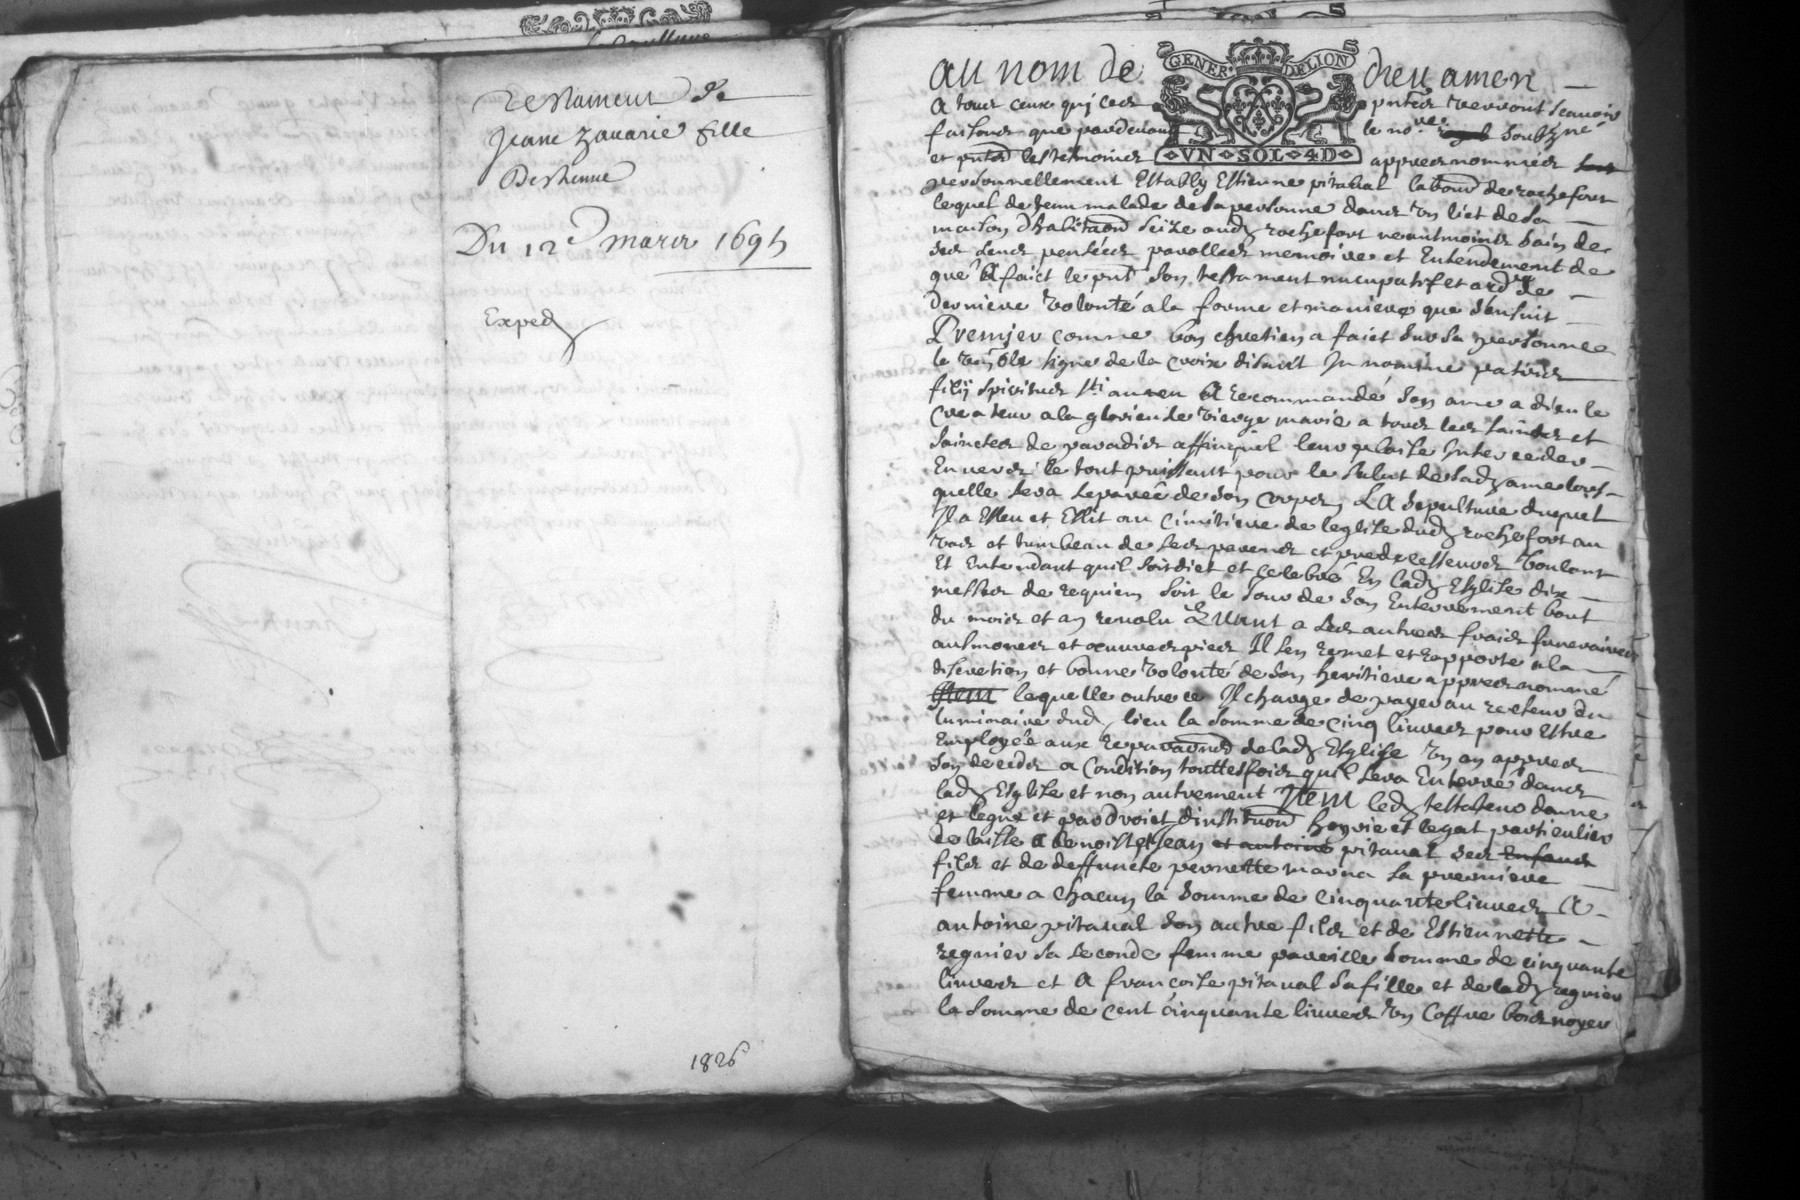 Testament de
Jeane Zacarie fille
Destienne
Du 12e mars 1695
Exped
1826
au nom de dieu amen
GENER DE LION
VN SOL 4D
A tous ceux quj ces pntes verront scavoir
faisons que pardevant le nore soubzné
et pnts les tesmoins apprez nommés
personnellement Estably Estienne pitaval labour de rochefort
lequel detenu malade de sa personne dans un lict de sa
maison dhabitaon seize audt rochefort neantmoints sain de
ses sens pensées parolles memoire et Entendement de
gré A faict le pnt son testament nucupatif et ordre de
derniere volonté a la forme et maniere que sensuit
Premier comme bon chretien a faict sur sa personne
le signe de la croix disant In nomine patris
filij spiritus sti amen A recommandé son ame a dieu le
createur a la glorieuse vierge marie a tous les saints et
sainctes de paradis affinquil leur plaise Interceder
Envers le tout puissant pour le salut de sadt ame lors
quelle sera separeé de son corps, LA sepulture duquel
Il a Esleu et Eslit au cimitiere de leglise dudt rochefort au
vas et tumbeau de ses parents et predecesseurs voulant
Et Entendant quil soit dict et celebré En ladt Esglise dix
messes de requiem soit le jour de son Enterrement bout
du mois et an revolu Quant a ses autres frais funeraires
aulmones et oeuvres pies Il sen remet et rapporte a la
discretion et bonne volonté de son heritiere appres nommé
Item laquelle outre ce Il charge de payer au recteur du
luminaire dudt lieu la somme de cinq livres pour Estre
Employée aux reparaons de ladt Esglise un an appres
son deceds a Condition touttesfois quil sera Enterré dans
ladt Esglise et non autrement Item ledt testateur donne
et legue et par droict dinstituon heyrie et legat particulier
delaisse A benoist et Jean et antoine pitaval ses Enfants
fils et de deffuncte pernette marna sa premiere
femme a chacun la somme de cinquante livres A
antoine pitaval son autre fils et de Estiennette
regnier sa seconde femme pareille somme de cinquante
livres et A françoise pitaval sa fille et de ladt regnier
la somme de cent cinquante livres un coffre bois noyer